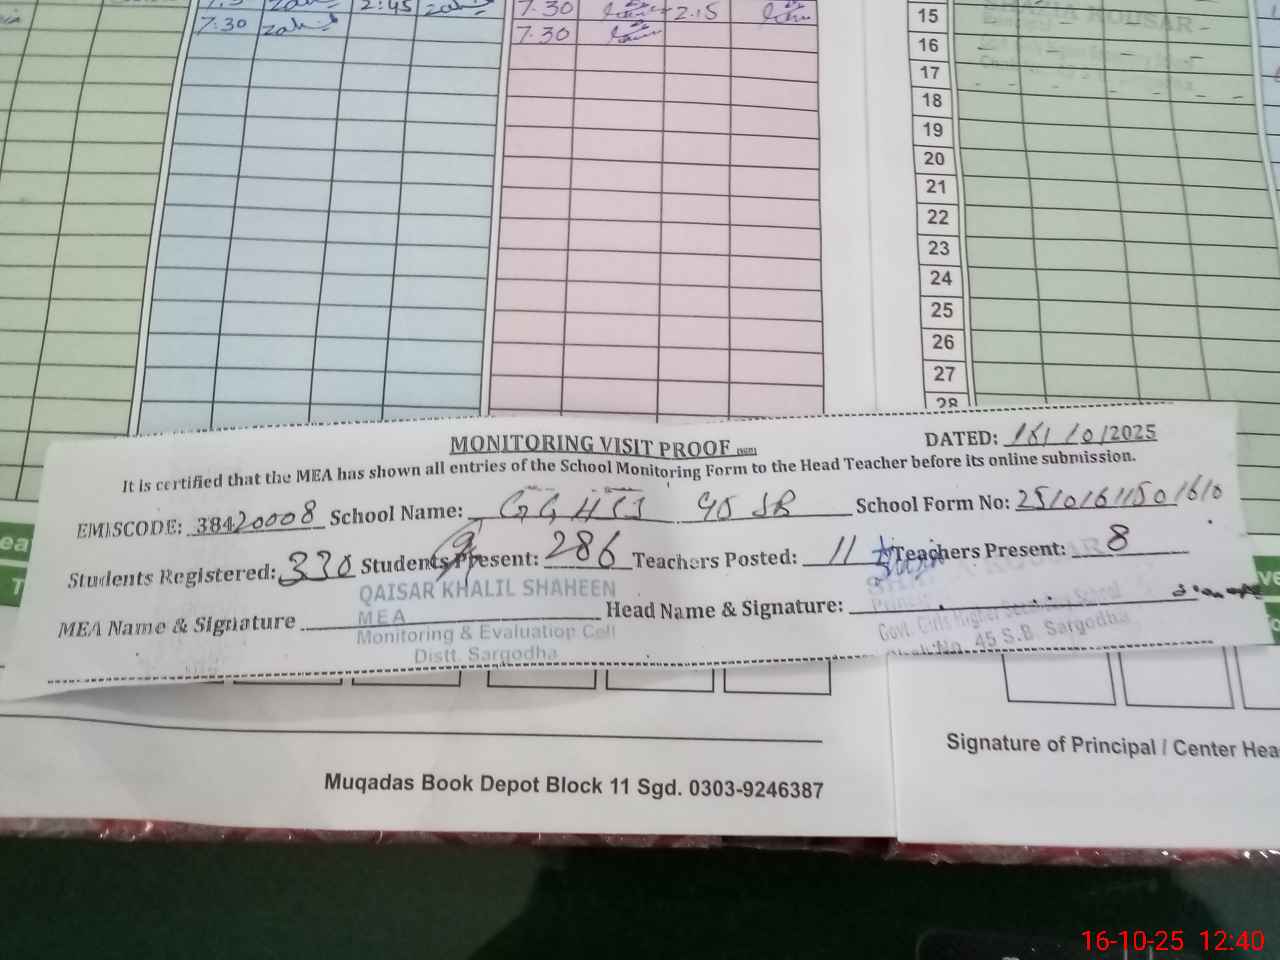 2:45
7.30 2.15
7:30 7.30
15
16
17
18
19
20
21
22
23
24
25
26
27
28
MONITORING VISIT PROOF
DATED: 16/10/2025
It is certified that the MEA has shown all entries of the School Monitoring Form to the Head Teacher before its online submission.
EMISCODE: 38420008 School Name: GGHSS 45 SB School Form No: 25101611501610
Students Registered: 330 Students Present: 286 Teachers Posted: 11 Teachers Present: 8
MEA Name & Signature Head Name & Signature:
QAISAR KHALIL SHAHEEN
MEA
Monitoring & Evaluation Cell
Distt. Sargodha
Govt. Girls Higher Secondary School
Chak No. 45 S.B. Sargodha
Signature of Principal / Center Hea
Muqadas Book Depot Block 11 Sgd. 0303-9246387
16-10-25 12:40